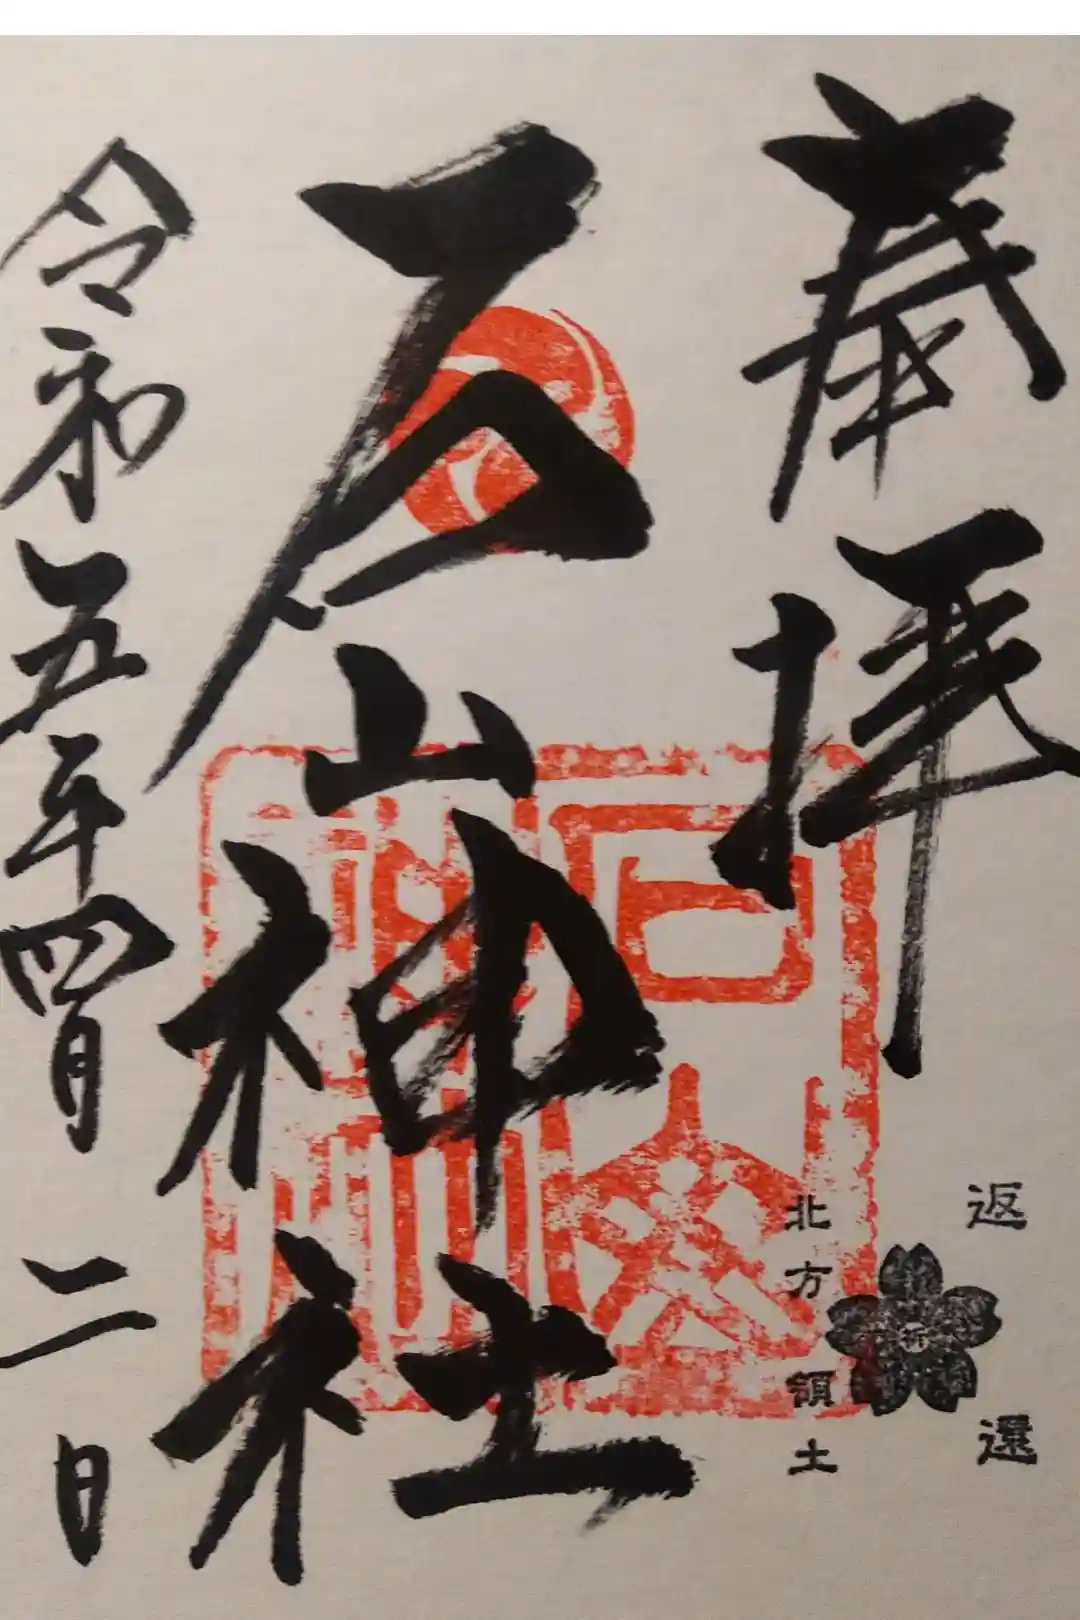 奉拝
石山神社
令和五年四月二日
返還
北方領土
祈